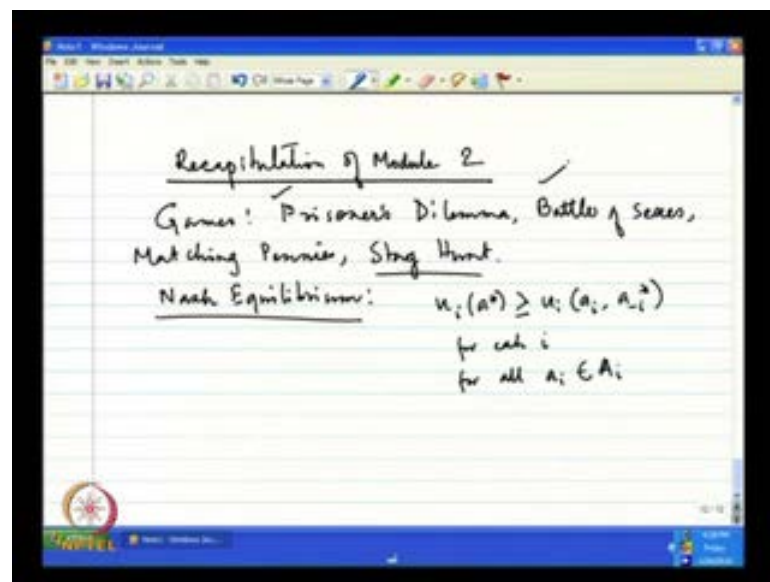 Note1 - Windows Journal
Recapitulation of Module 2
Games: Prisoner's Dilemma, Battle of Sexes,
Matching Pennies, Stag Hunt.
Nash Equilibrium: uᵢ(a*) ≥ uᵢ(aᵢ, a₋ᵢ*)
for each i
for all aᵢ ∈ Aᵢ
NPTEL